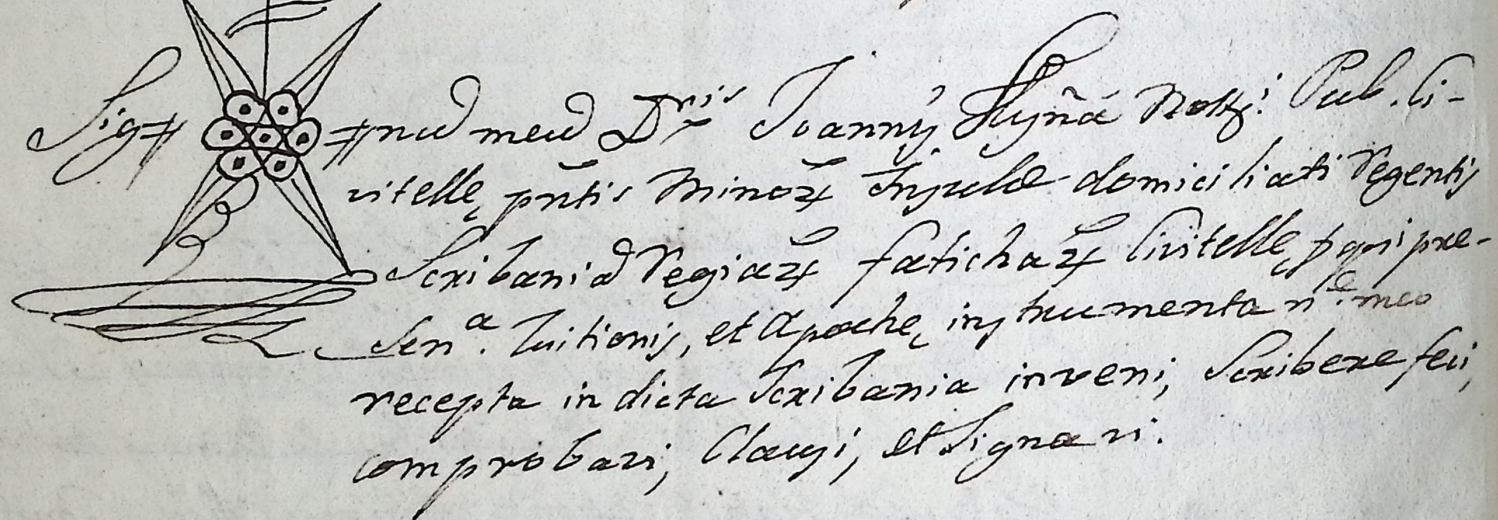 Sig= =nũ meũ Dris Joannis Flyña Notȳ. Pub. Ci-
vitellę pñtis Minorꝝ Insulæ domiciliati Regentis
Scribaniã Regiarꝝ faticharꝝ Civitellę, qui præ-
sena. luitionis, et Apochę instrumenta ne. meo
recepta in dicta Scribania inveni, Scribere feci,
comprobavi, Clausi, et Signavi.